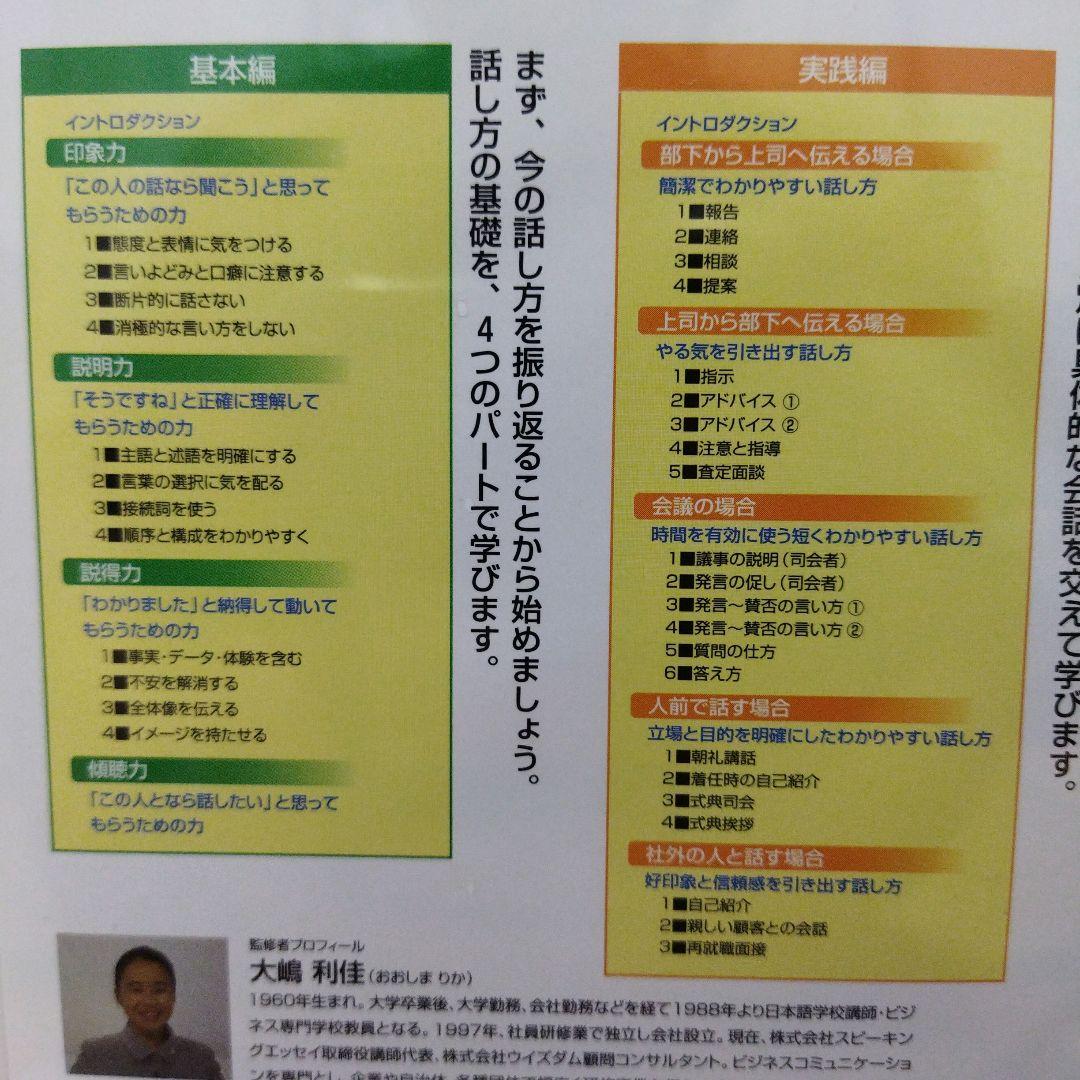 基本編
イントロダクション
印象力
「この人の話なら聞こう」と思って
もらうための力
1■態度と表情に気をつける
2■言いよどみと口癖に注意する
3■断片的に話さない
4■消極的な言い方をしない
説明力
「そうですね」と正確に理解して
もらうための力
1■主語と述語を明確にする
2■言葉の選択に気を配る
3■接続詞を使う
4■順序と構成をわかりやすく
説得力
「わかりました」と納得して動いて
もらうための力
1■事実・データ・体験を含む
2■不安を解消する
3■全体像を伝える
4■イメージを持たせる
傾聴力
「この人となら話したい」と思って
もらうための力
まず、今の話し方を振り返ることから始めましょう。
話し方の基礎を、4つのパートで学びます。
実践編
イントロダクション
部下から上司へ伝える場合
簡潔でわかりやすい話し方
1■報告
2■連絡
3■相談
4■提案
上司から部下へ伝える場合
やる気を引き出す話し方
1■指示
2■アドバイス ①
3■アドバイス ②
4■注意と指導
5■査定面談
会議の場合
時間を有効に使う短くわかりやすい話し方
1■議事の説明(司会者)
2■発言の促し(司会者)
3■発言〜賛否の言い方 ①
4■発言〜賛否の言い方 ②
5■質問の仕方
6■答え方
人前で話す場合
立場と目的を明確にしたわかりやすい話し方
1■朝礼講話
2■着任時の自己紹介
3■式典司会
4■式典挨拶
社外の人と話す場合
好印象と信頼感を引き出す話し方
1■自己紹介
2■親しい顧客との会話
3■再就職面接
具体的な会話を交えて学びます。
監修者プロフィール
大嶋 利佳(おおしま りか)
1960年生まれ。大学卒業後、大学勤務、会社勤務などを経て1988年より日本語学校講師・ビジ
ネス専門学校教員となる。1997年、社員研修業で独立し会社設立。現在、株式会社スピーキン
グエッセイ取締役講師代表、株式会社ウイズダム顧問コンサルタント。ビジネスコミュニケーショ
ンを専門とし、企業や自治体、各種団体で